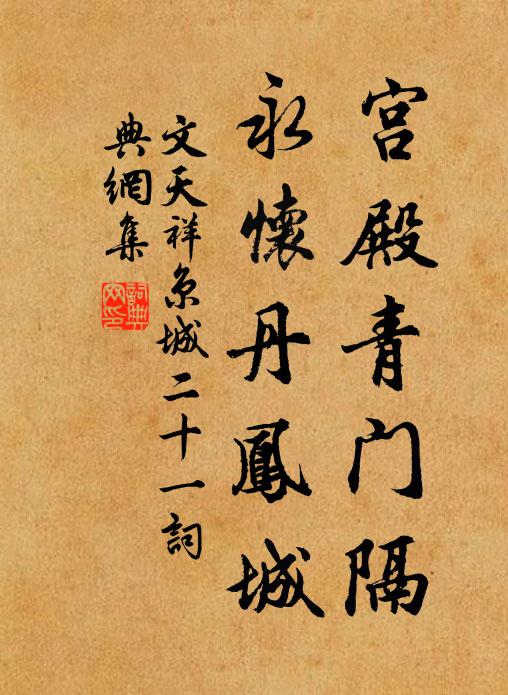 宫殿青门隔
永懷丹鳳城
文天祥京城二十一詞
典網集
詞典網印